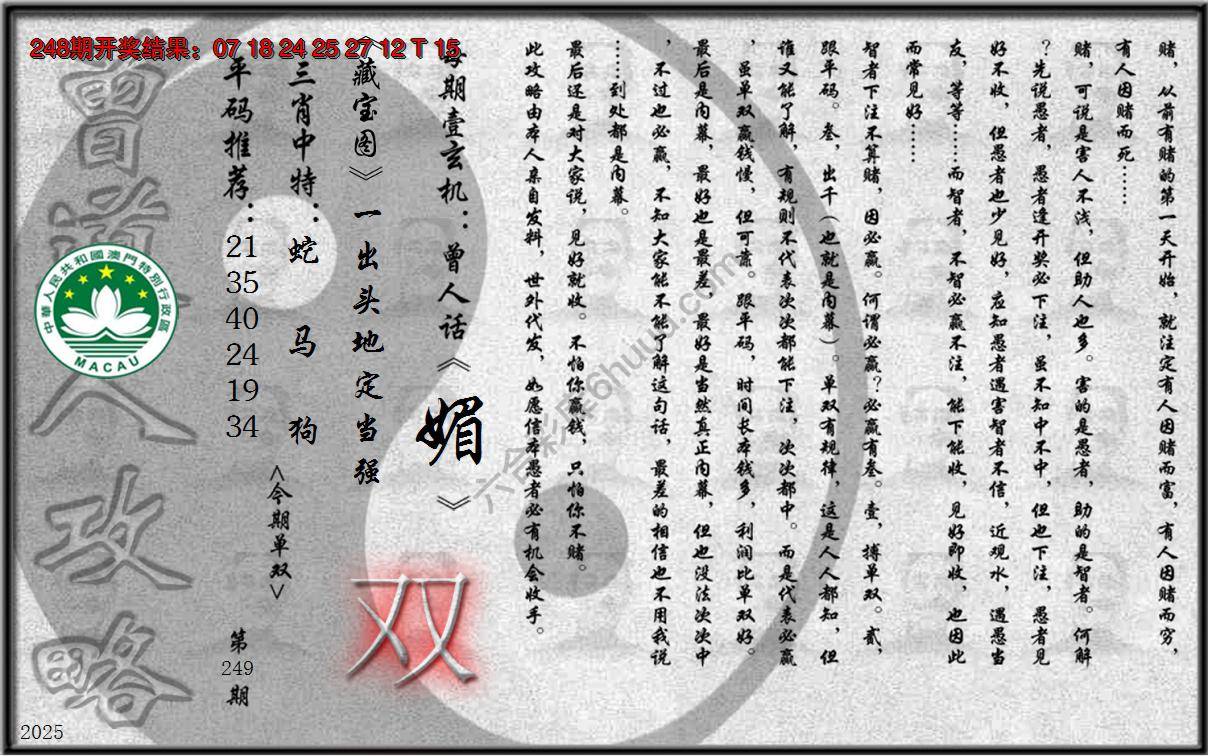 248期开奖结果：07 18 24 25 27 12 T 15
赌，从前有赌的第一天开始，就注定有人因赌而富，有人因赌而穷，
有人因赌而死……
赌，可说是害人不浅，但助人也多。害的是愚者，助的是智者。何解
？先说愚者，愚者逢开奖必下注，虽不知中不中，但也下注，愚者见
好不收，但愚者也少见好，应知愚者遇害智者不信，近观水，遇愚当
友，等等……而智者，不智必赢不注，能下能收，见好即收，也因此
而常见好……
智者下注不算赌，因必赢。何谓必赢？必赢有叁。壹，搏单双。贰，
跟平码。叁，出千（也就是内幕）。单双有规律，这是人人都知，但
谁又能了解，有规则不代表次次都能下注，次次都中。而是代表必赢
，虽单双赢钱慢，但可靠。跟平码，时间长本钱多，利润比单双好。
最后是内幕，最好也是最差，最好是当然真正内幕，但也没法次次中
，不过也必赢，不知大家能不能了解这句话，最差的相信也不用我说
……到处都是内幕。
最后还是对大家说，见好就收。不怕你赢钱，只怕你不赌。
此攻略由本人亲自发料，世外代发，如愿信本愚者必有机会收手。
每期壹玄机：曾人话《媚》
《藏宝图》一出头地定当强
双
三肖中特：蛇 马 狗
<今期单双>
平码推荐：
21
35
40
24
19
34
第
249
期
曾道人攻略
中華人民共和國澳門特別行政區
MACAU
六合彩库6huuu.com
2025